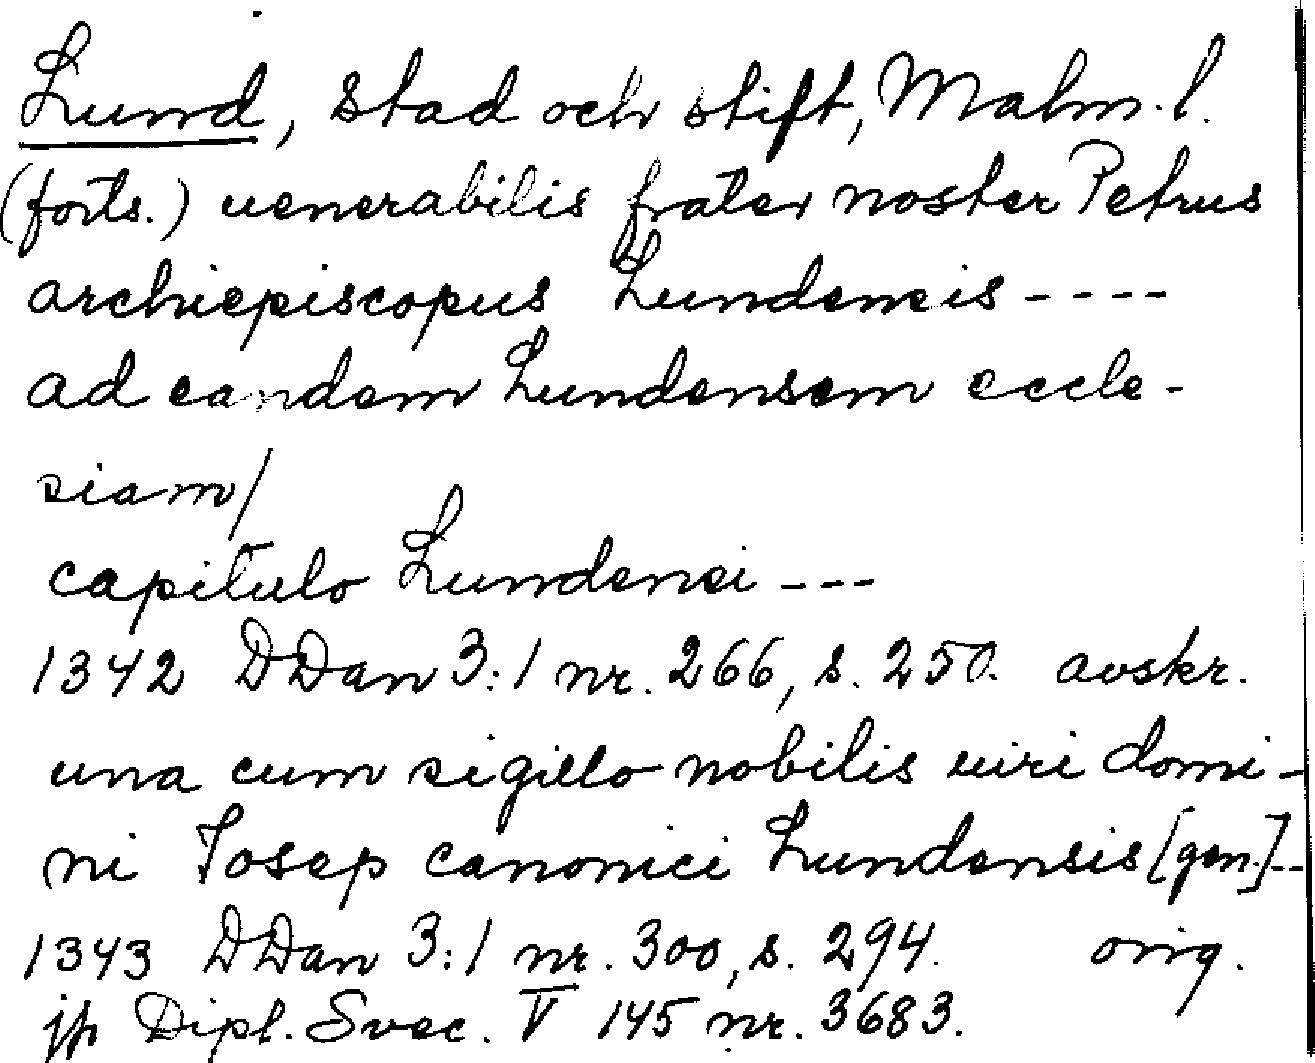 Lund, stad och stift, Malm. l.
(forts.) uenerabilis frater noster Petrus
archiepiscopus Lundensis ----
ad eandem Lundensem eccle-
siam/
capitulo Lundensi ---
1342 DDan 3:1 nr. 266, s. 250. avskr.
una cum sigillo nobilis uiri domi-
ni Iosep canonici Lundensis [gen.]--
1343 DDan 3:1 nr. 300, s. 294. orig.
jfr Dipl. Svec. V 145 nr. 3683.